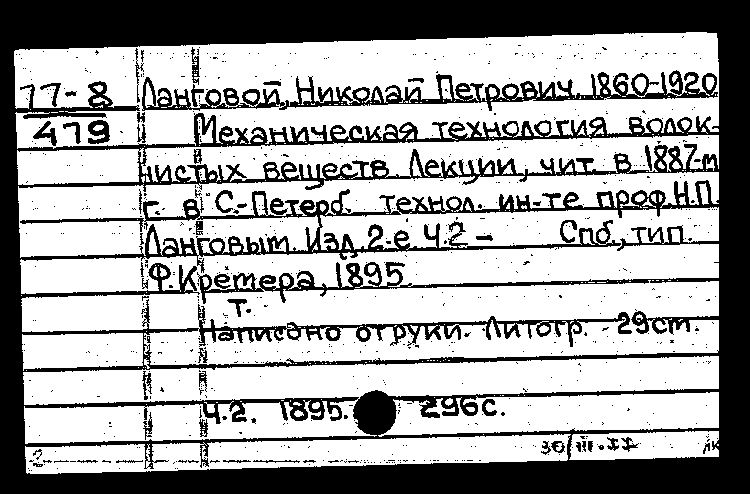 77-8 Ланговой, Николай Петрович. 1860-1920
479 Механическая технология волок-
нистых веществ. Лекции, чит. в 1887-м
г. в С.-Петерб. технол. ин-те проф. Н.П.
Ланговым. Изд. 2-е. Ч.2 - Спб., тип.
Ф.Кремера, 1895.
т.
Написано от руки. Литогр. - 29см.
Ч.2. 1895. 296с.
2